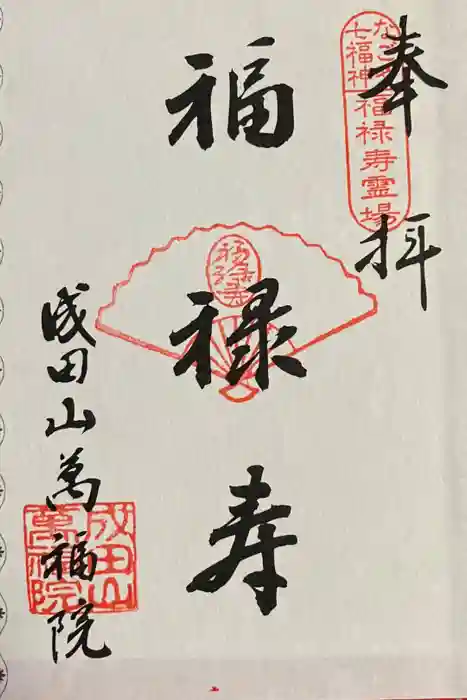 奉拝
なごや七福神
福禄寿霊場
福禄寿
福禄寿
成田山萬福院
成田山萬福院